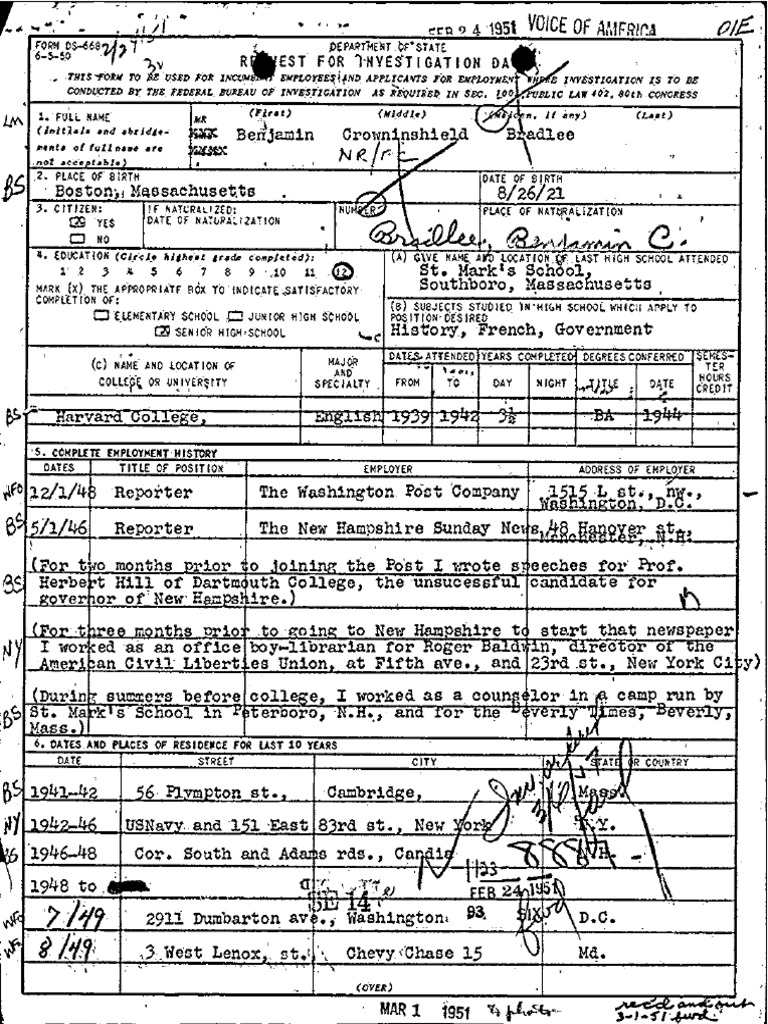 FEB 24 1951 VOICE OF AMERICA
01E
FORM DS-668
6-5-50
DEPARTMENT OF STATE
REQUEST FOR INVESTIGATION DA
THIS FORM TO BE USED FOR INCUMBENT EMPLOYEES AND APPLICANTS FOR EMPLOYMENT WHERE INVESTIGATION IS TO BE
CONDUCTED BY THE FEDERAL BUREAU OF INVESTIGATION AS REQUIRED IN SEC. 1001 PUBLIC LAW 402, 80th CONGRESS
1. FULL NAME
(Initials and abridge-
ments of full name are
not acceptable)
MR (First) (Middle) (Maiden, if any) (Last)
Benjamin Crowninshield Bradlee
BS
2. PLACE OF BIRTH
Boston, Massachusetts
DATE OF BIRTH
8/26/21
3. CITIZEN:
YES
NO
IF NATURALIZED:
DATE OF NATURALIZATION
NUMBER
PLACE OF NATURALIZATION
Bradlee, Benjamin C.
4. EDUCATION (Circle highest grade completed):
1 2 3 4 5 6 7 8 9 10 11 12
MARK (X) THE APPROPRIATE BOX TO INDICATE SATISFACTORY
COMPLETION OF:
ELEMENTARY SCHOOL JUNIOR HIGH SCHOOL
SENIOR HIGH SCHOOL
(A) GIVE NAME AND LOCATION OF LAST HIGH SCHOOL ATTENDED
St. Mark's School,
Southboro, Massachusetts
(B) SUBJECTS STUDIED IN HIGH SCHOOL WHICH APPLY TO
POSITION DESIRED
History, French, Government
(C) NAME AND LOCATION OF
COLLEGE OR UNIVERSITY
MAJOR
AND
SPECIALTY
DATES ATTENDED
FROM TO
YEARS COMPLETED
DAY NIGHT
DEGREES CONFERRED
TITLE DATE
SEMES-
TER
HOURS
CREDIT
BS Harvard College, English 1939 1942 3½ BA 1944
5. COMPLETE EMPLOYMENT HISTORY
DATES TITLE OF POSITION EMPLOYER ADDRESS OF EMPLOYER
WFO 12/1/48 Reporter The Washington Post Company 1515 L st., nw.,
Washington, D.C.
BS 5/1/46 Reporter The New Hampshire Sunday News, 48 Hanover st.,
Manchester, N.H.
(For two months prior to joining the Post I wrote speeches for Prof.
BS Herbert Hill of Dartmouth College, the unsucessful candidate for
governor of New Hampshire.)
(For three months prior to going to New Hampshire to start that newspaper
NY I worked as an office boy-librarian for Roger Baldwin, director of the
American Civil Liberties Union, at Fifth ave., and 23rd st., New York City)
(During summers before college, I worked as a counselor in a camp run by
BS St. Mark's School in Peterboro, N.H., and for the Beverly Times, Beverly,
Mass.)
6. DATES AND PLACES OF RESIDENCE FOR LAST 10 YEARS
DATE STREET CITY STATE OR COUNTRY
BS 1941-42 56 Plympton st., Cambridge, Mass.
NY 1942-46 USNavy and 151 East 83rd st., New York N.Y.
BS 1946-48 Cor. South and Adams rds., Candia N.H.
1948 to
FEB 24 1951
SE 14
WFO 7/49 2911 Dumbarton ave., Washington D.C.
WFO 8/49 3 West Lenox, st., Chevy Chase 15 Md.
(OVER)
MAR 1 1951
3-1-51